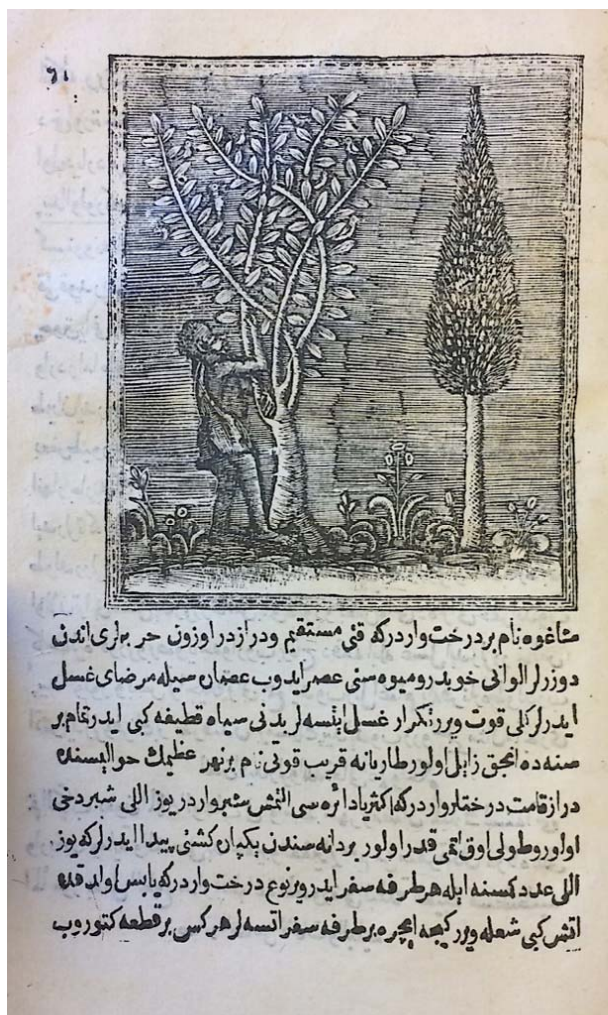 ٦١
شاغوه نام بر درخت واردر که قتی مستقیم و دراز در اوزون حربه لری اندن
دوزرلر الوانی خوبدر و میوه سنی عصر ایدوب عصاره سیله مرضای غسل
ایدرلر کلی قوت ویرر تکرار غسل ایتسه لر بدنی سیاه قطیفه کبی ایدر تمام بر
سنه ده انجق زایل اولور طاریانه قریب قوتی نام بر نهر عظیمك حوالیسنده
دراز قامت درختلر واردر که اکثریا دائره سی التمش شبر واردر یوز اللی شبر دخی
اولور و طولی اوق اتمی قدر اولور بر دانه سندن یکپاره کشتی پیدا ایدرلر که یوز
اللی عدد کمسنه ایله هر طرفه سفر ایدر و بر نوع درخت واردر که یابس اولدقده
اتش کبی شعله ویرر کیجه ایچره بر طرفه سفر اتسه لر هر کس بر قطعه کتوروب